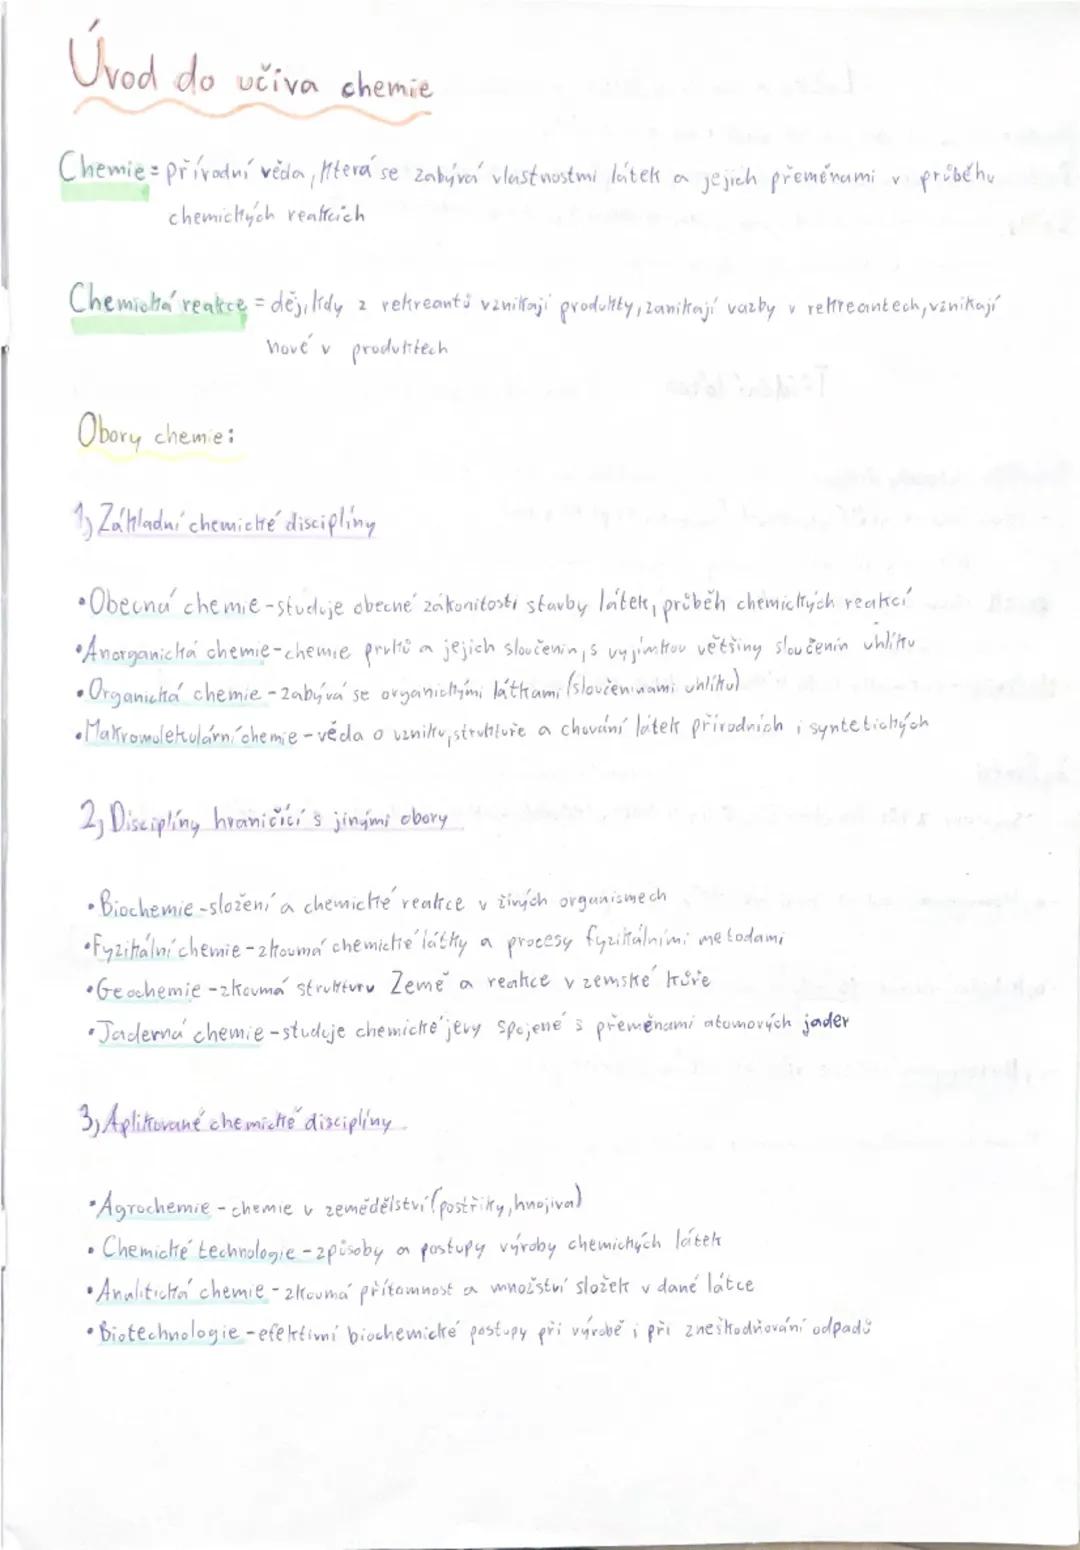 Úvod do učiva chemie
Chemie = přírodní věda, která se zabývá vlastnostmi látek a jejich přeměnami v průběhu
chemických reakcích
Chemická reakce = děj, kdy z rekreantů vznikají produkty, zanikají vazby v rekreantech, vznikají
nové v produktech
Obory chemie:
1) Základní chemické disciplíny
•Obecná chemie - studuje obecné zákonitosti stavby látek, průběh chemických reakcí
•Anorganická chemie - chemie prvků a jejich sloučenin, s vyjímkou většiny sloučenin uhlíku
•Organická chemie - zabývá se organickými látkami (sloučeninami uhlíku)
•Makromolekulární chemie - věda o vzniku, struktuře a chování látek přírodních i syntetických
2) Disciplíny hraničící s jinými obory
•Biochemie - složení a chemické reakce v živých organismech
•Fyzikální chemie - zkoumá chemické látky a procesy fyzikálními metodami
•Geochemie - zkoumá strukturu Země a reakce v zemské kůře
•Jaderná chemie - studuje chemické jevy spojené s přeměnami atomových jader
3) Aplikované chemické disciplíny
•Agrochemie - chemie v zemědělství (postřiky, hnojiva)
•Chemické technologie - způsoby a postupy výroby chemických látek
•Analitická chemie - zkoumá přítomnost a množství složek v dané látce
•Biotechnologie - efektivní biochemické postupy při výrobě i při zneškodňování odpadů